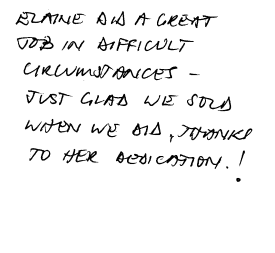 ELAINE DID A GREAT
JOB IN DIFFICULT
CIRCUMSTANCES –
JUST GLAD WE SOLD
WHEN WE DID, THANKS
TO HER DEDICATION.!